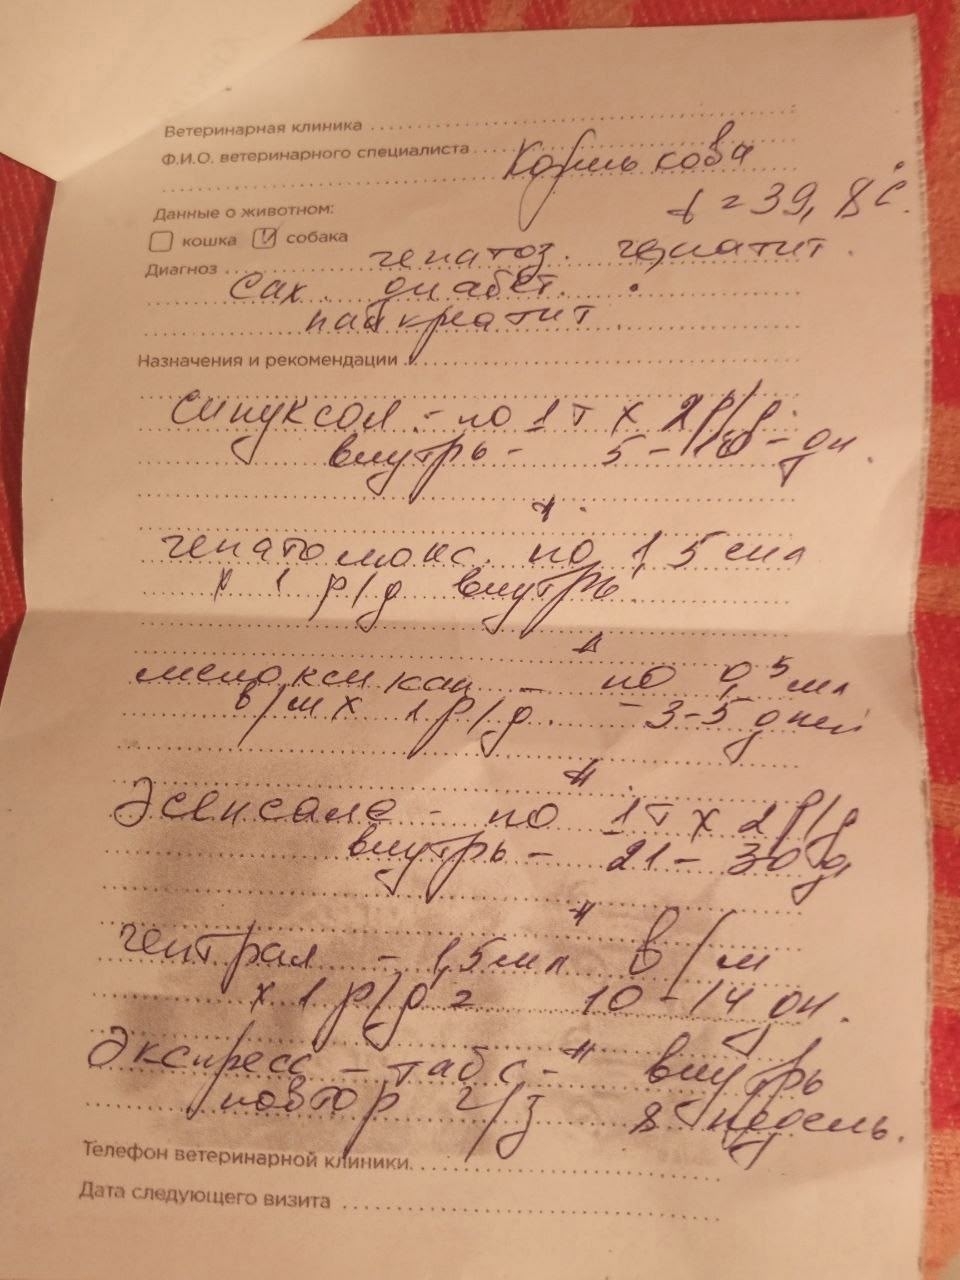 Ветеринарная клиника
Ф.И.О. ветеринарного специалиста
t = 39,8°C.
Данные о животном:
кошка собака
Диагноз гепатоз. гепатит.
Сах. диабет.
панкреатит.
Назначения и рекомендации
синуксол - по 1т х 2 р/д.
внутрь - 5-10-дн.
по 1,5 мл
х 1 р/д внутрь.
мелоксикан - по 0,5 мл
в/м х 1 р/д. - 3-5 дней
Эсенсале - по 1т х 2 р/д
внутрь - 21-30 д
- 1,5 мл в/м
х 1 р/д = 10-14 дн.
Экспресс - табс - внутрь
повтор ч/з 8 недель.
Телефон ветеринарной клиники
Дата следующего визита